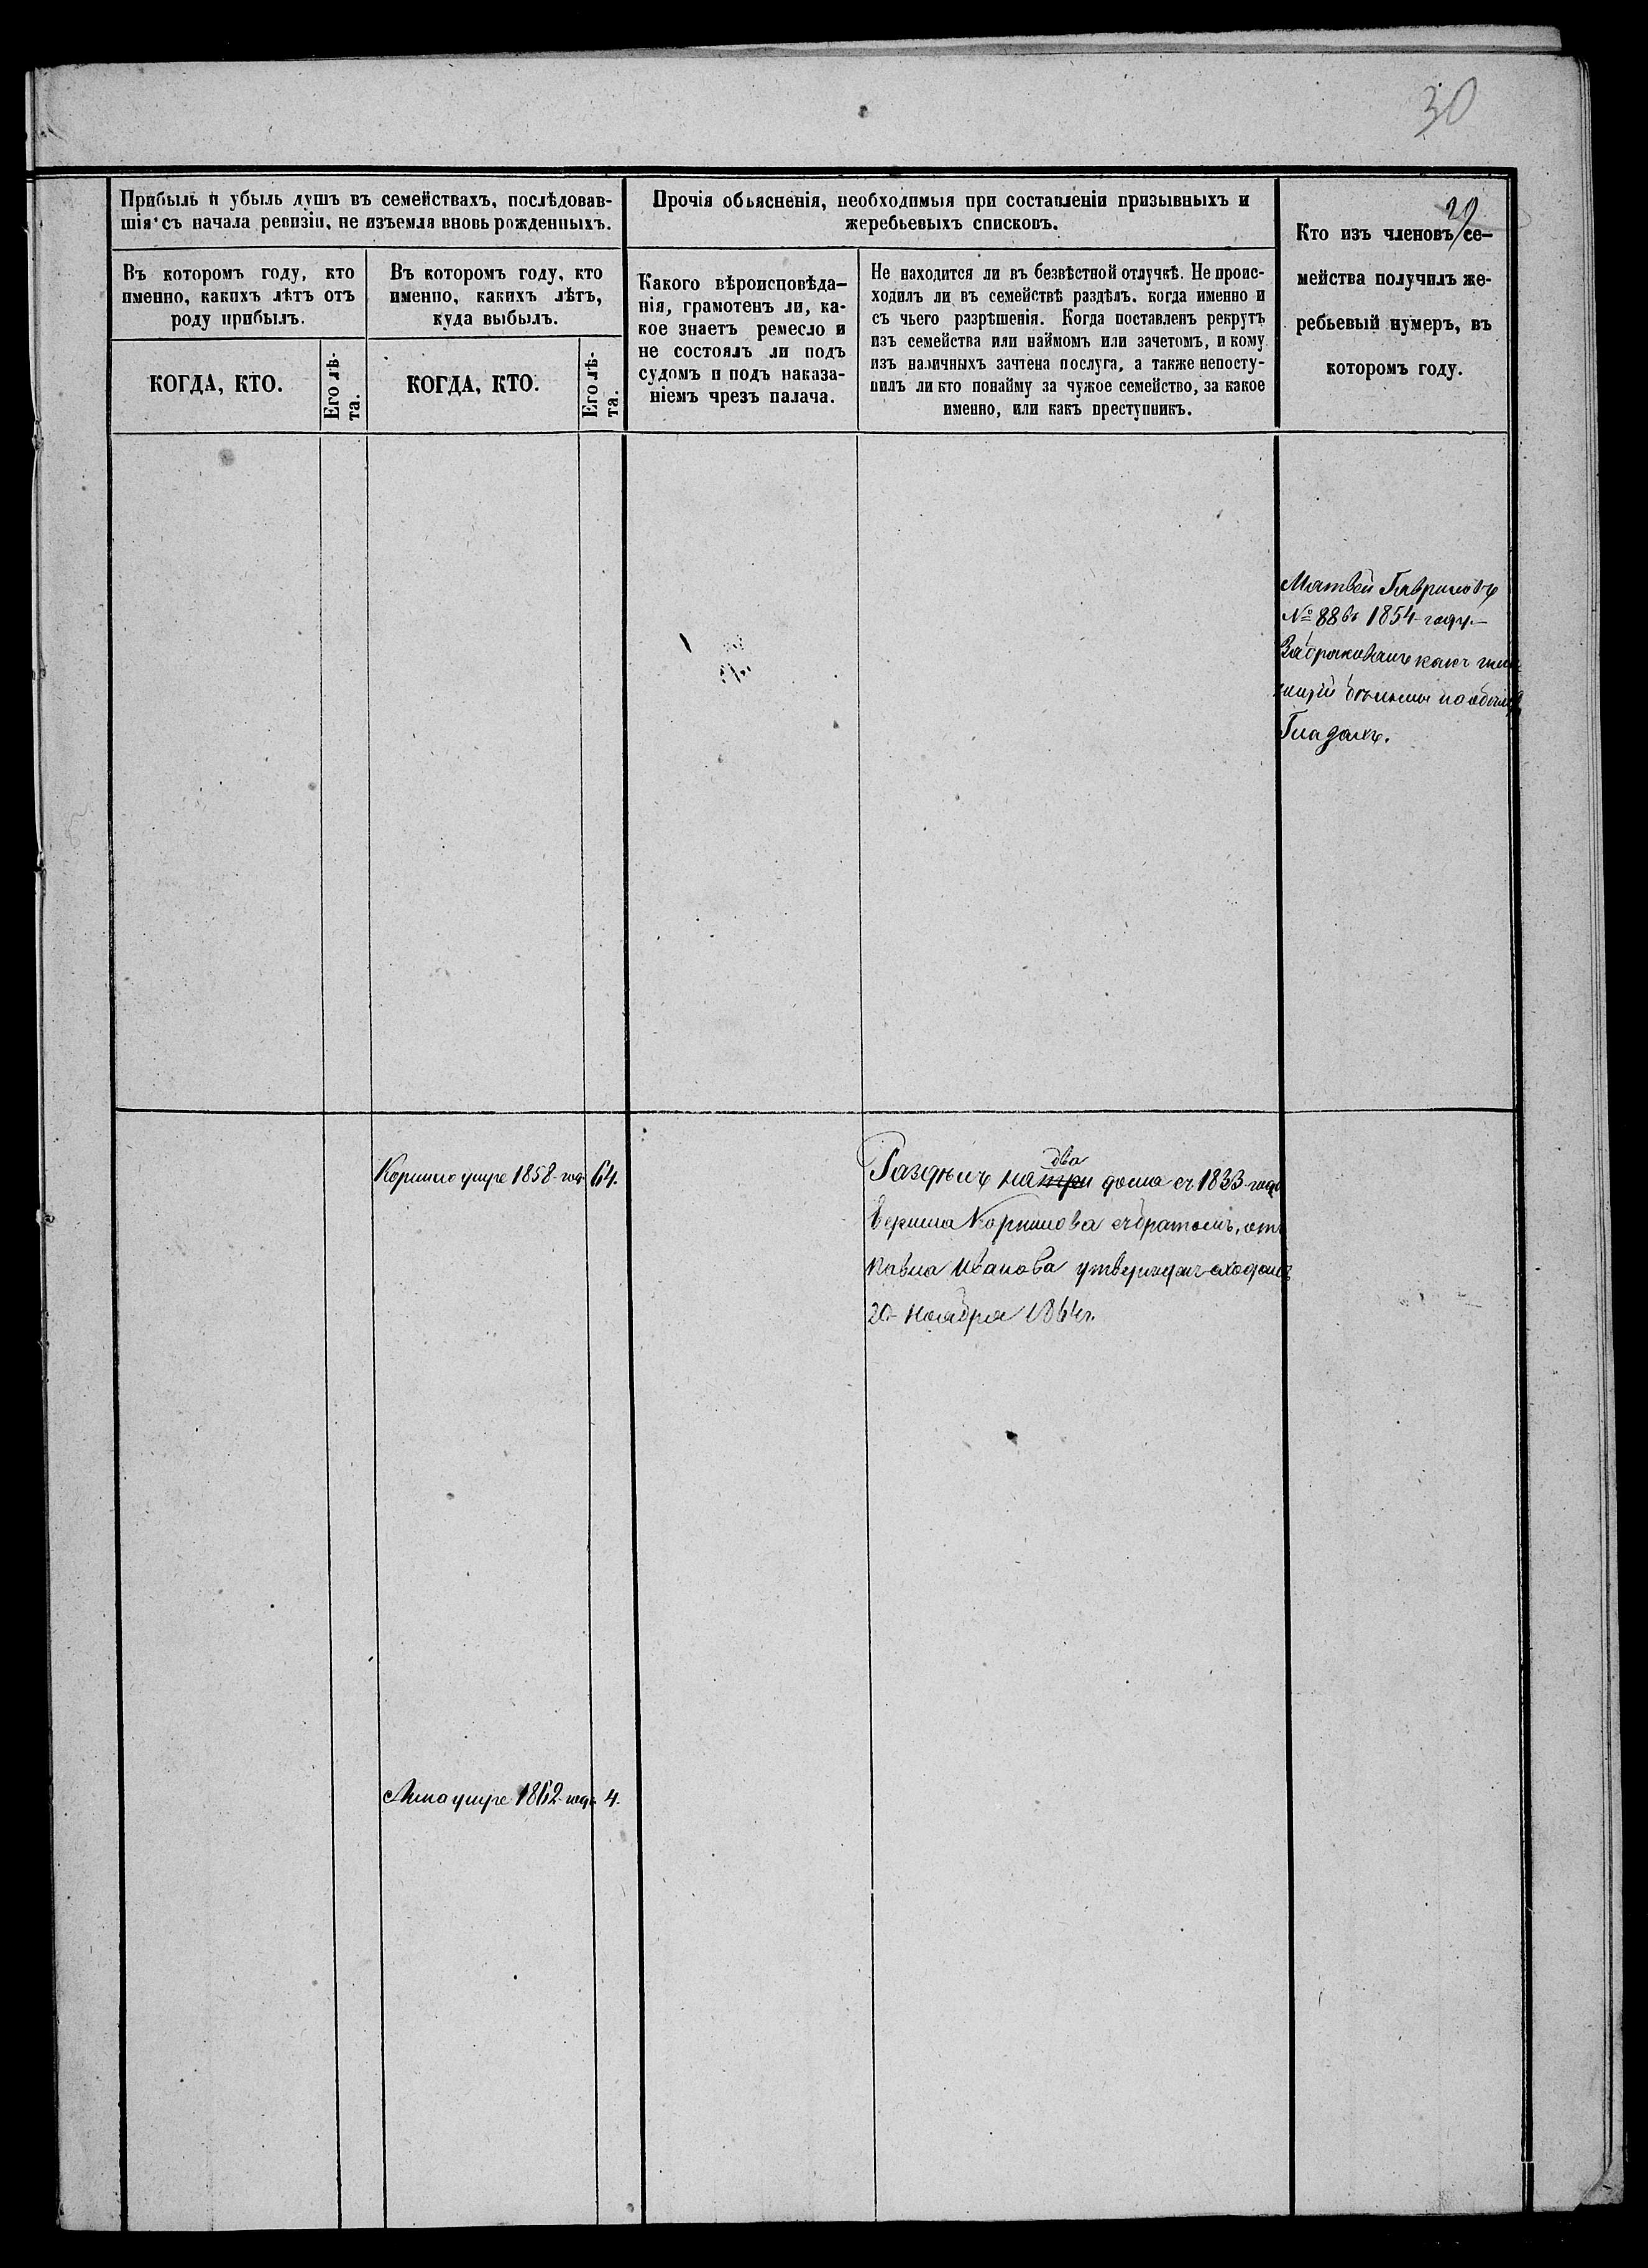 30
29
Прибыль и убыль душъ въ семействахъ, послѣдовав-
шія съ начала ревизіи, не изъемля вновь рожденныхъ.
Прочія объясненія, необходимыя при составленіи призывныхъ и
жеребьевыхъ списковъ.
Кто изъ членовъ се-
мейства получилъ же-
ребьевый нумеръ, въ
которомъ году.
Въ которомъ году, кто
именно, какихъ лѣтъ отъ
роду прибылъ.
Въ которомъ году, кто
именно, какихъ лѣтъ,
куда выбылъ.
Какого вѣроисповѣда-
нія, грамотенъ ли, ка-
кое знаетъ ремесло и
не состоялъ ли подъ
судомъ и подъ наказа-
ніемъ чрезъ палача.
Не находится ли въ безвѣстной отлучкѣ. Не проис-
ходилъ ли въ семействѣ раздѣлъ. когда именно и
съ чьего разрѣшенія. Когда поставленъ рекрутъ
изъ семейства или наймомъ или зачетомъ, и кому
изъ наличныхъ зачтена послуга, а также непосту-
пилъ ли кто понайму за чужое семейство, за какое
именно, или какъ преступникъ.
КОГДА, КТО.
Его лѣ-
та.
КОГДА, КТО.
Его лѣ-
та.
Матвей Гавриловъ
№ 88 въ 1854 году.
Забракованъ какъ
Глазахъ.
Корнило умре 1858 года 64.
два
Раздѣлъ на три дома съ 1833 года
Корнилова съ братомъ, отъ
Павла Иванова утвержденъ сходомъ
20 Ноября 1864 г.
умре 1862 года 4.